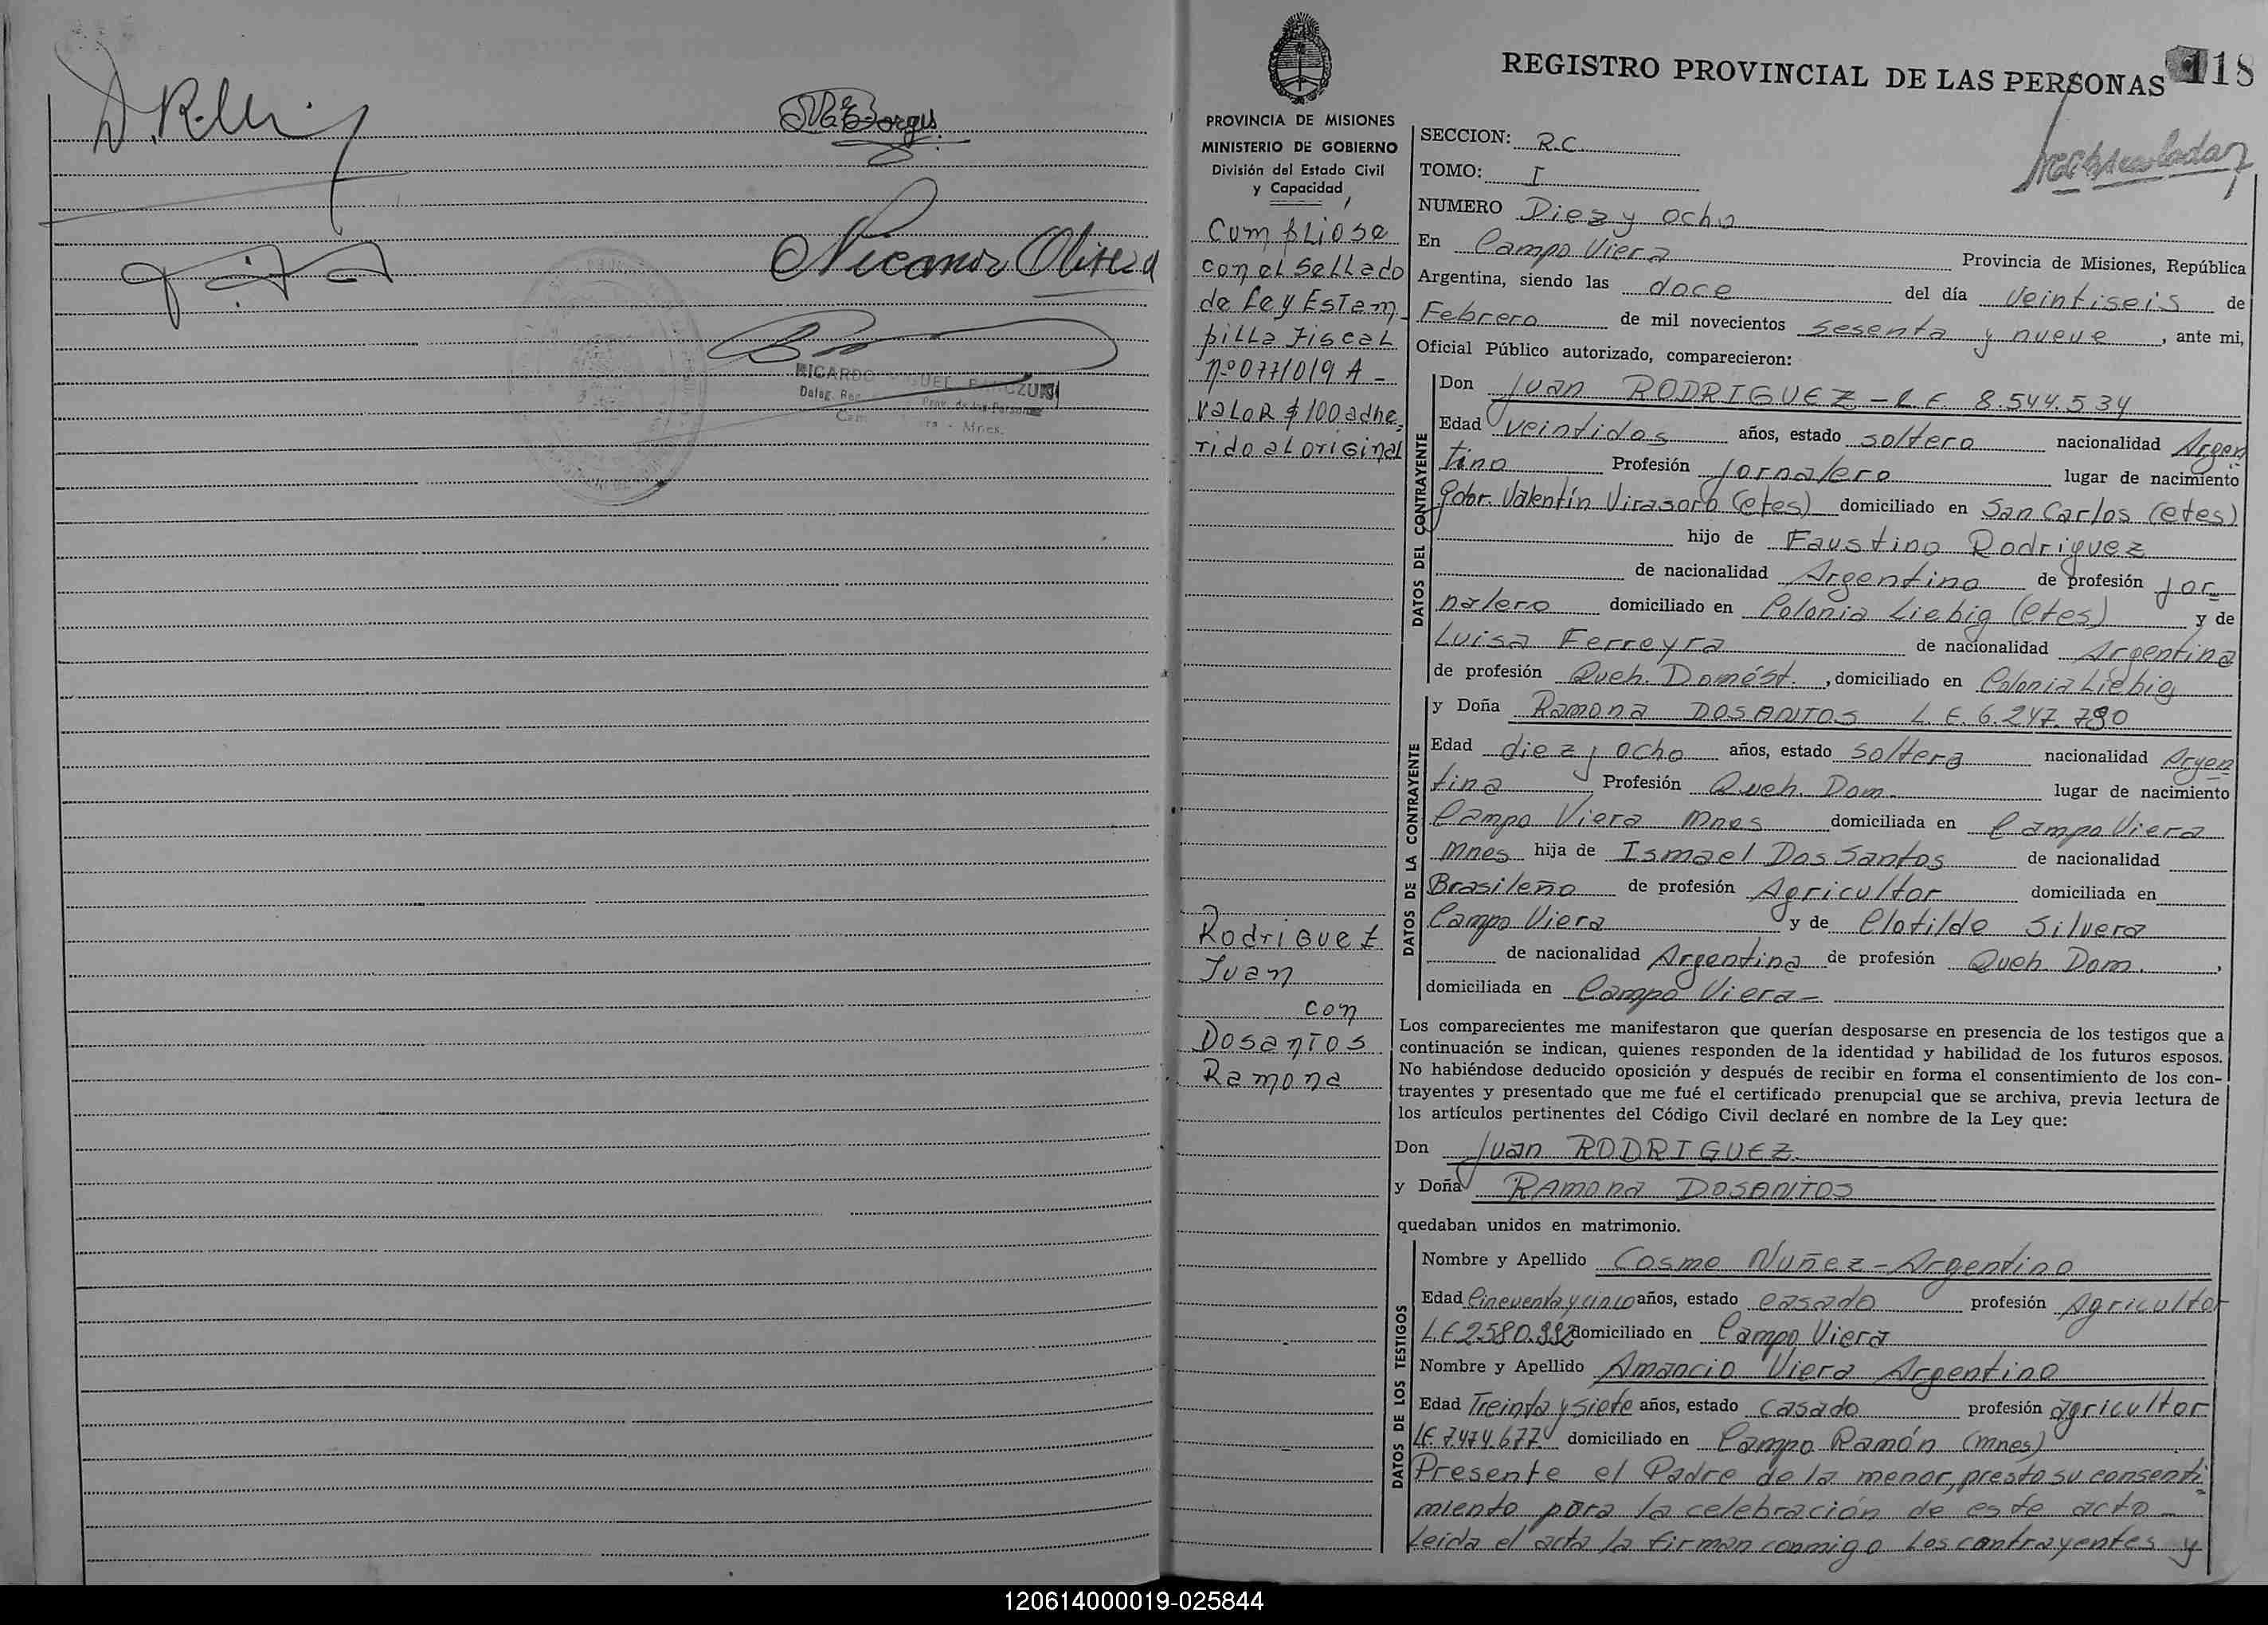 Nicanor Olivera
REGISTRO PROVINCIAL DE LAS PERSONAS
118
PROVINCIA DE MISIONES
MINISTERIO DE GOBIERNO
División del Estado Civil
y Capacidad
Cumplióse
con el Sellado
de Ley Estam
pilla Fiscal
nº 0771019 A -
valor $ 100 adhe
rido al original
Rodriguez
Juan
con
Dosantos
Ramona
SECCION: R.C.
TOMO: I
NUMERO Diez y ocho
En Campo Viera Provincia de Misiones, República
Argentina, siendo las doce del día veintiseis de
Febrero de mil novecientos sesenta y nueve, ante mi,
Oficial Público autorizado, comparecieron:
DATOS DEL CONTRAYENTE
Don Juan RODRIGUEZ - L.E. 8.544.534
Edad veintidos años, estado soltero nacionalidad Argen
tino Profesión Jornalero lugar de nacimiento
Gobr. Valentín Virasoro (Ctes) domiciliado en San Carlos (Ctes)
hijo de Faustino Rodriguez
de nacionalidad Argentino de profesión Jor
nalero domiciliado en Colonia Liebig (Ctes) y de
Luisa Ferreyra de nacionalidad Argentina
de profesión Queh. Domést., domiciliado en Colonia Liebig
DATOS DE LA CONTRAYENTE
y Doña Ramona DOSANTOS L.E. 6.247.790
Edad diez y ocho años, estado soltera nacionalidad Argen
tina Profesión Queh. Dom. lugar de nacimiento
Campo Viera Mnes domiciliada en Campo Viera
Mnes hija de Ismael Dos Santos de nacionalidad
Brasileño de profesión Agricultor domiciliada en
Campo Viera y de Clotilde Silvera
de nacionalidad Argentina de profesión Queh Dom.,
domiciliada en Campo Viera -
Los comparecientes me manifestaron que querían desposarse en presencia de los testigos que a
continuación se indican, quienes responden de la identidad y habilidad de los futuros esposos.
No habiéndose deducido oposición y después de recibir en forma el consentimiento de los con-
trayentes y presentado que me fué el certificado prenupcial que se archiva, previa lectura de
los artículos pertinentes del Código Civil declaré en nombre de la Ley que:
Don Juan RODRIGUEZ
y Doña RAMONA DOSANTOS
quedaban unidos en matrimonio.
DATOS DE LOS TESTIGOS
Nombre y Apellido Cosme Nuñez - Argentino
Edad Cincuenta y cinco años, estado casado profesión Agricultor
L.E 2.580.992 domiciliado en Campo Viera
Nombre y Apellido Amancio Viera Argentino
Edad Treinta y siete años, estado casado profesión agricultor
LE. 7.474.677 domiciliado en Campo Ramón (Mnes)
Presente el Padre de la menor, presto su consenti
miento para la celebración de este acto
Leida el acta la firman conmigo los contrayentes y
120614000019-025844